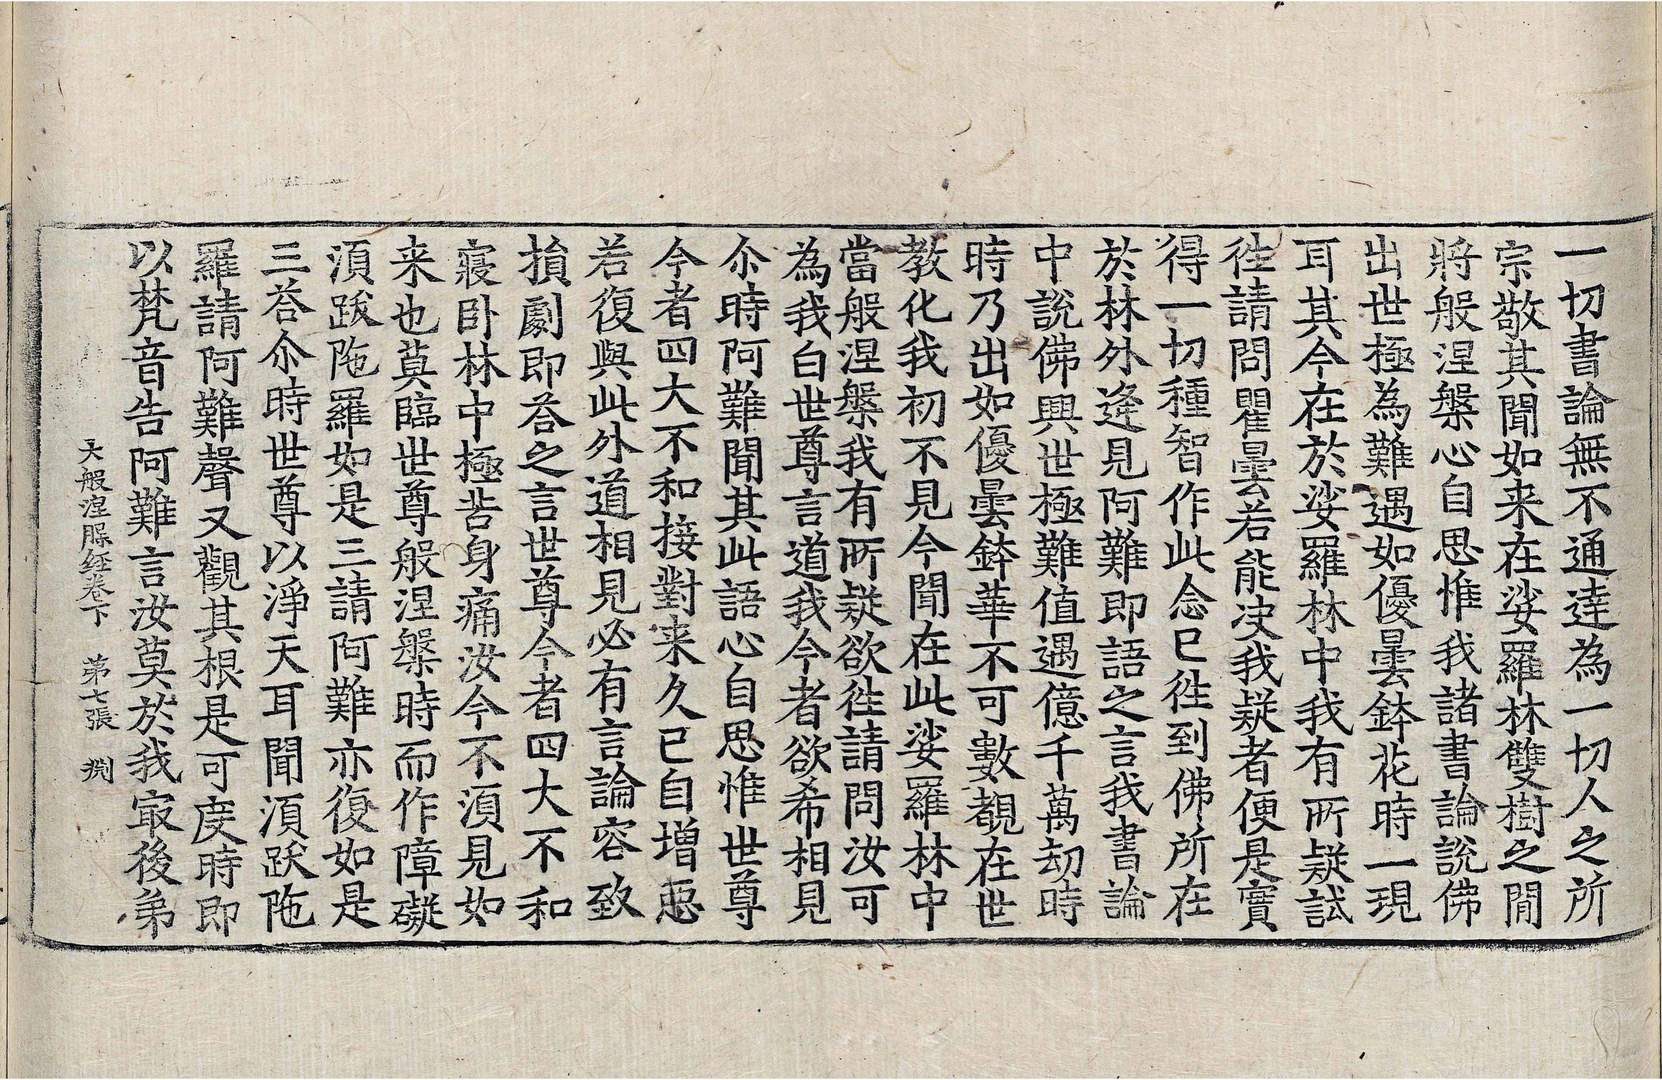 一切書論無不通達為一切人之所
宗敬其聞如来在娑羅林雙樹之間
將般涅槃心自思惟我諸書論說佛
出世極為難遇如優曇鉢花時一現
耳其今在於娑羅林中我有所疑試
徃請問瞿曇若能决我疑者便是實
得一切種智作此念已徃到佛所在
於林外逢見阿難即語之言我書論
中說佛興世極難值遇億千萬劫時
時乃出如優曇鉢華不可數覩在世
教化我初不見今聞在此娑羅林中
當般涅槃我有所疑欲徃請問汝可
為我白世尊言道我今者欲希相見
尒時阿難聞其此語心自思惟世尊
今者四大不和接對来久已自增惡
若復與此外道相見必有言論容致
損劇即荅之言世尊今者四大不和
寢卧林中極苦身痛汝今不湏見如
来也莫臨世尊般涅槃時而作障礙
湏跋陁羅如是三請阿難亦復如是
三荅尒時世尊以淨天耳聞湏跋陁
羅請阿難聲又觀其根是可度時即
以梵音告阿難言汝莫於我㝡後弟
大般涅槃経卷下 第七張 淵